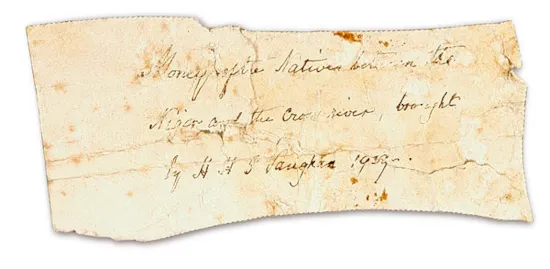 Money of the Natives between the
Niger and the Cross river, brought
by H H P Vaughan 1929.